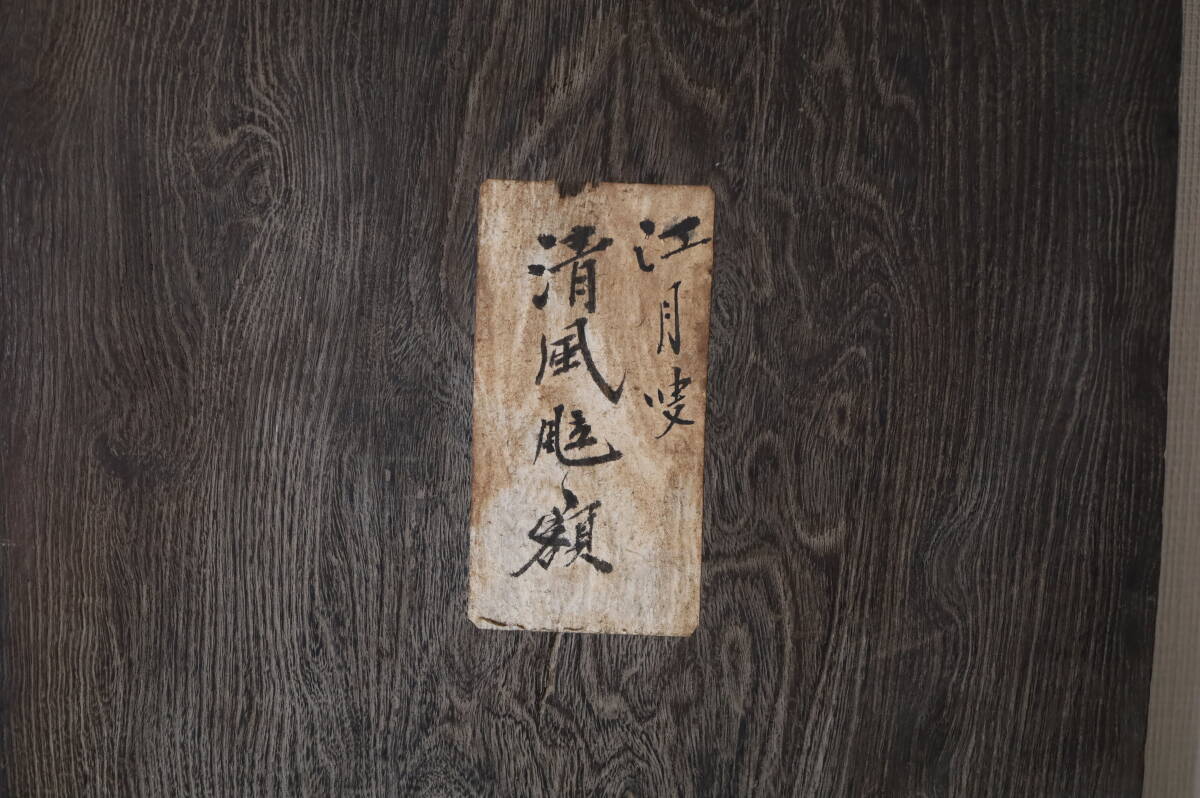 江月叟
清風颭額